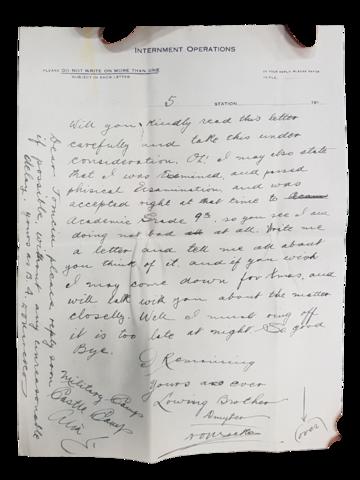 INTERNMENT OPERATIONS
PLEASE DO NOT WRITE ON MORE THAN ONE
SUBJECT IN EACH LETTER
IN YOUR REPLY PLEASE REFER
TO FILE
5 STATION 191
Will you kindly read this letter
carefully and take this under
consideration. I may also state
that I was and passed
physical Examination, and was
accepted right at that time to
Academic Grade 9th, so you see I am
doing not bad at all. Write me
a letter and tell me all about
you think of it, and if you wish
I may come down for Xmas, and
will talk with you about the matter
closelly. Well I must ring off
it is too late at night So good
Bye.
I Remaining
Yours as ever
Loving Brother
Dmyter
Military Camps
Castle Camp
Alta
(over)
Dear please reply soon
if possible, without any unreasonable
delay. Yours as B 4